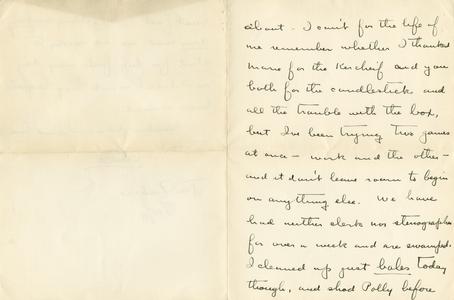 about. I can't for the life of
me remember whether I thanked
Marie for the Kerchief and you
both for the candlestick and
all the trouble with the box,
but I've been trying two games
at once - work and the other -
and it don't leave room to begin
on anything else. We have
had neither clerk nor stenographer
for over a week and are swamped.
I cleaned up just bales today
though, and shod Polly before